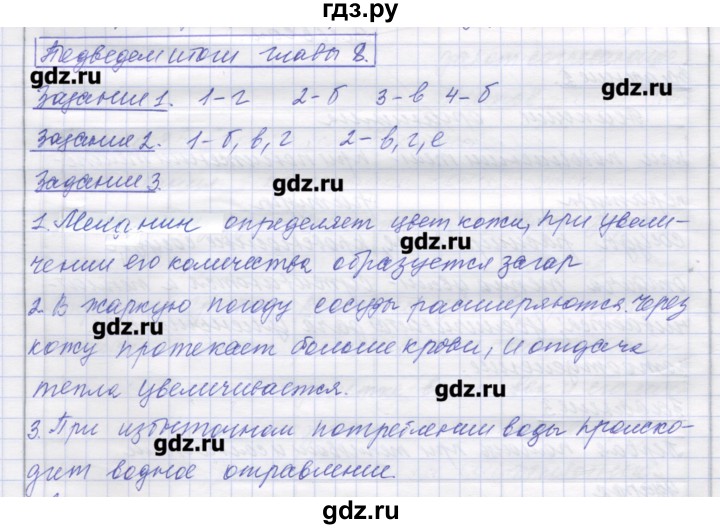 гдз.ру
Подведем итоги главы 8.
gdz.ru
gdz.ru
Задание 1. 1-г 2-б 3-в 4-б
Задание 2. 1-б, в, г 2-в, г, е
Задание 3.
gdz.ru
1. Меланин определяет цвет кожи, при увели-
gdz.ru
чении его количества образуется загар
2. В жаркую погоду сосуды расширяются. Через
gdz.ru
кожу протекает больше крови, и отдача
тепла увеличивается.
gdz.ru
3. При избыточном потреблении воды происхо-
gdz.ru
дит водное отравление.
gdz.ru